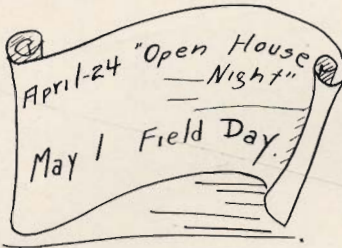 April-24 "Open House
Night"
May 1 Field Day.